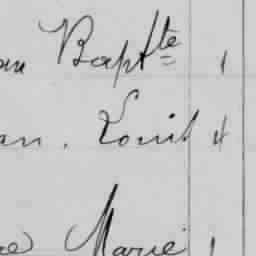 an Baptte 1
an. Louis 4
re Marie 1